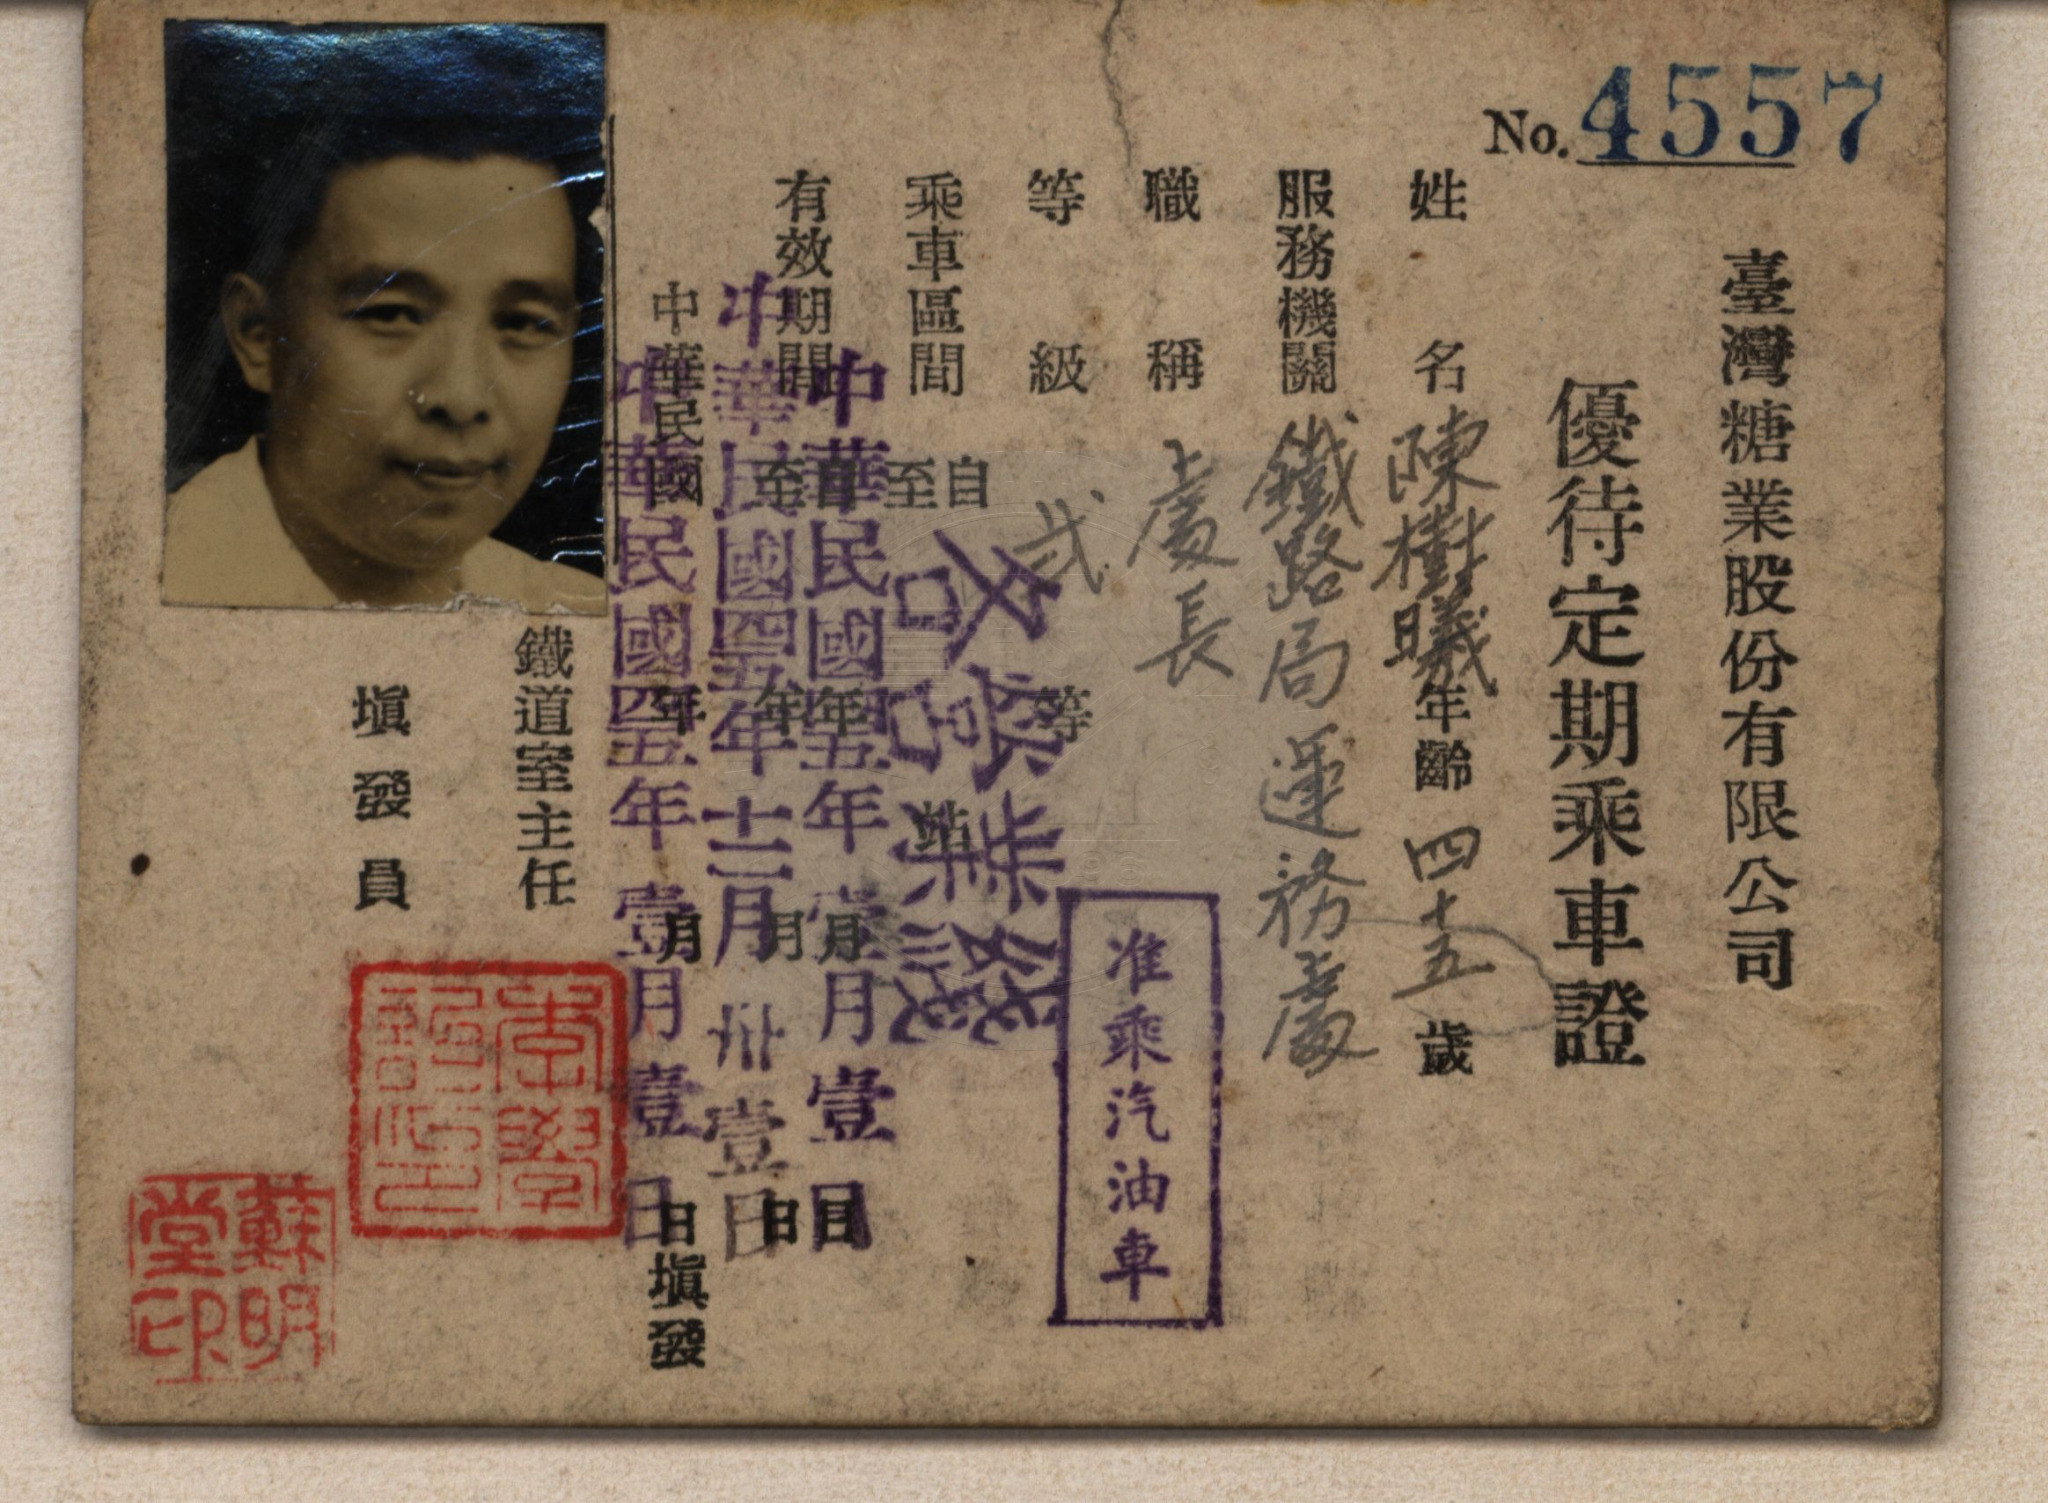 No. 4557
臺灣糖業股份有限公司
優待定期乘車證
姓名 陳樹曦 年齡 四十五 歲
服務機關 鐵路局運務處
職稱 處長
等級 弐 等
乘車區間 自 至 站
各線
准乘汽油車
有效期間 自 年 月 日 至 年 月 日
中華民國四五年壹月壹日
中華民國四五年十二月卅壹日
中華民國 年 月 日填發
中華民國四五年壹月壹日
鐵道室主任
填發員
蘇明堂印